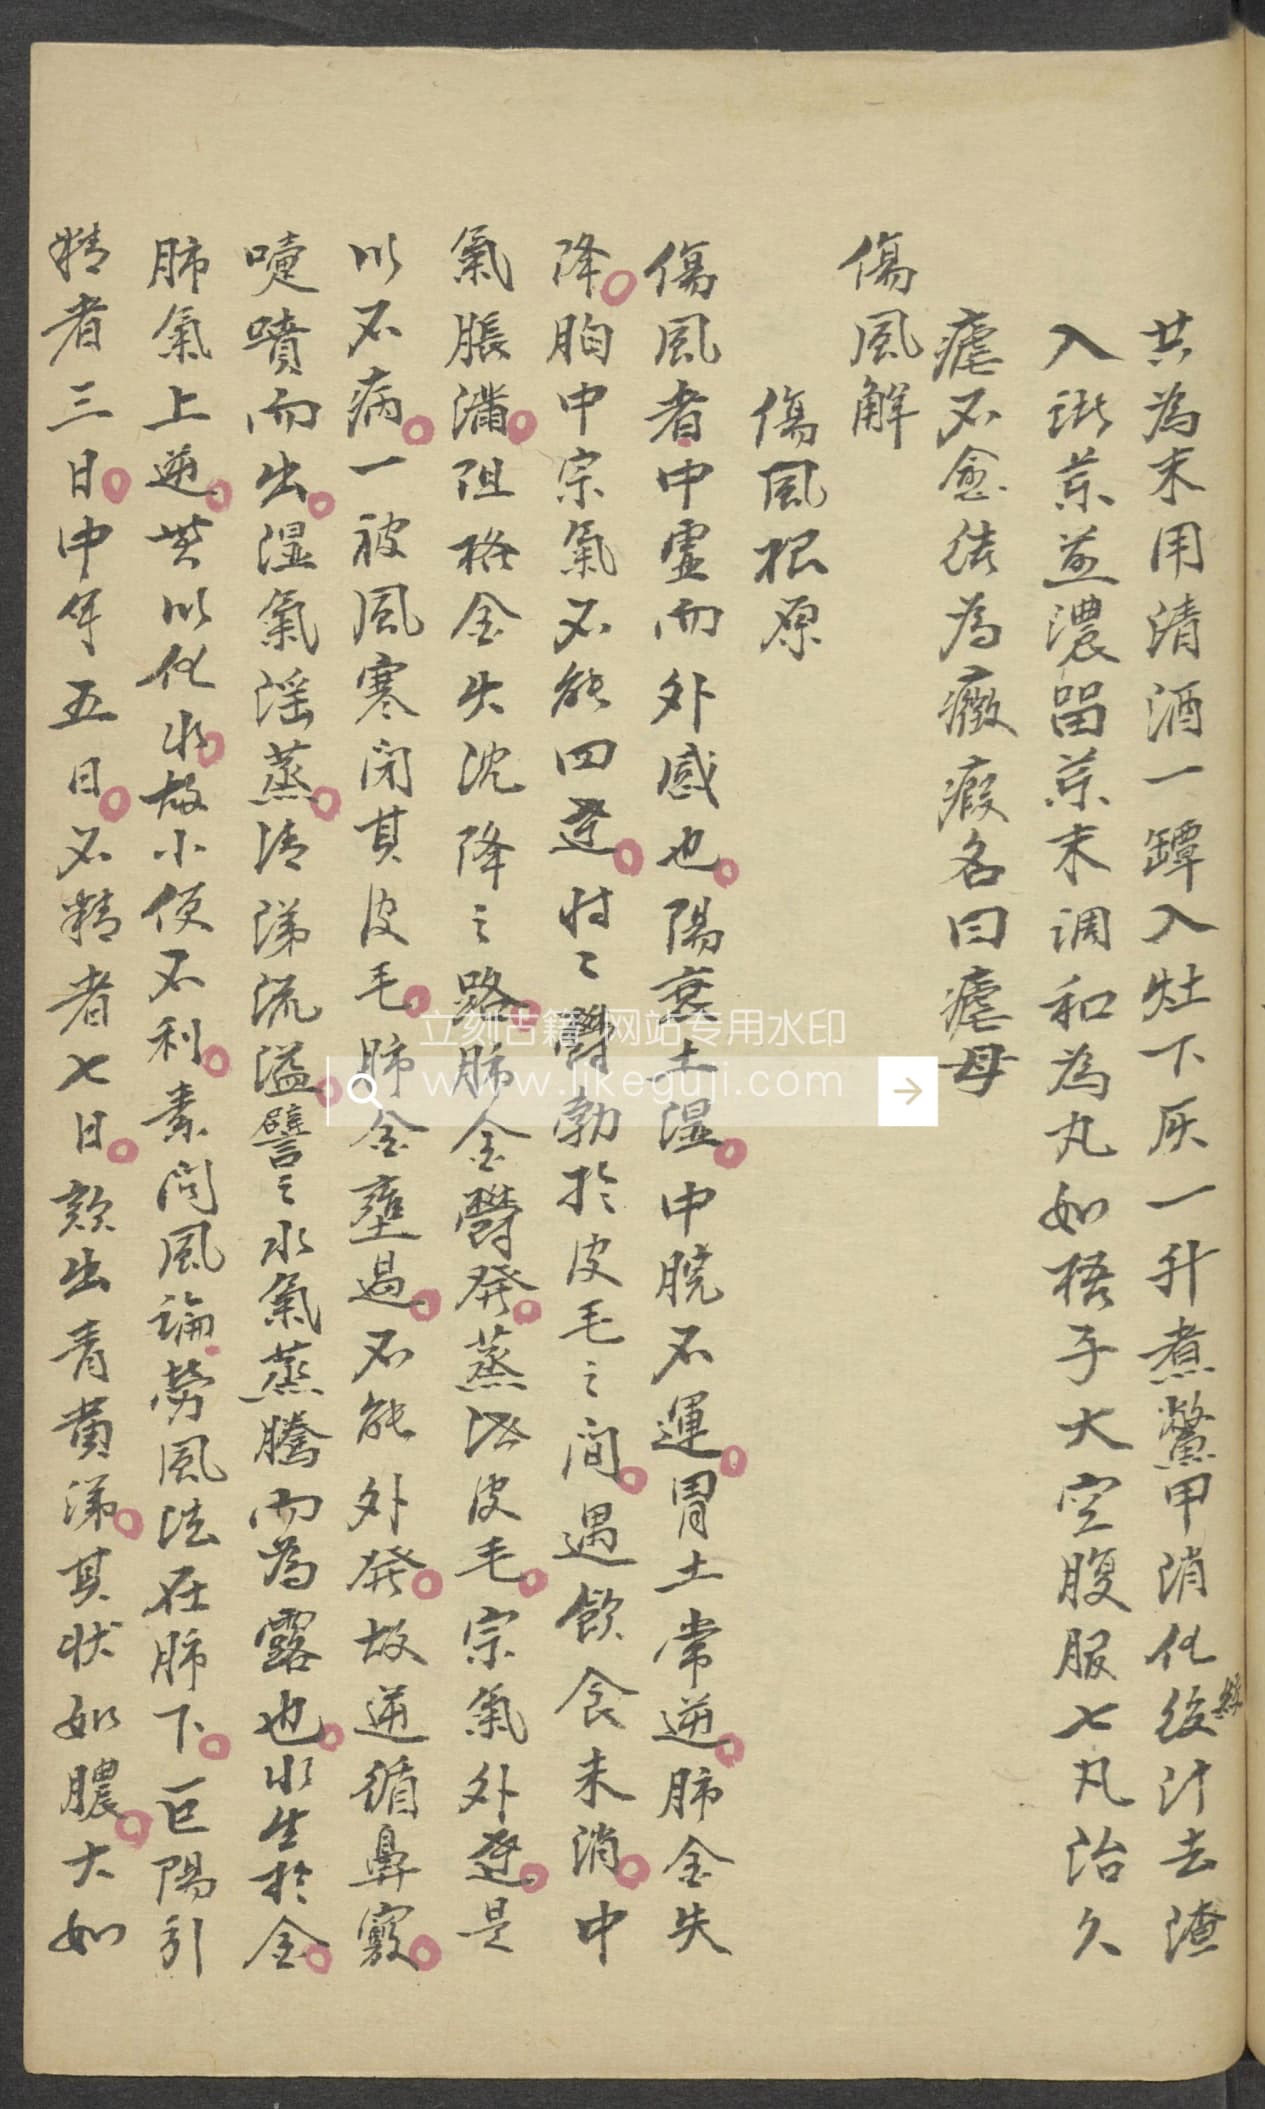 共為末用清酒一罈入灶下灰一升煮鱉甲消化絞汁去渣
入諸藥並濃留藥末調和為丸如梧子大空腹服七丸治久
瘧不愈結為癥瘕名曰瘧母
傷風解
傷風根原
傷風者中虛而外感也陽衰土湿中脘不運胃土常逆肺金失
降胸中宗氣不能四達时〻鬱勃於皮毛之间遇飲食未消中
氣脹滿阻格金失沈降之路肺金鬱發蒸泄皮毛宗氣外達是
以不病一被風寒闭其皮毛肺金壅遏不能外發故逆循鼻竅
嚏噴而出湿氣淫蒸清涕流溢譬之水氣蒸騰而為露也水生於金
肺氣上逆無以化水故小便不利素问風論勞風法在肺下巨陽引
精者三日中年五日不精者七日欬出青黄涕其状如膿大如
立刻古籍 网站专用水印
www.likeguji.com